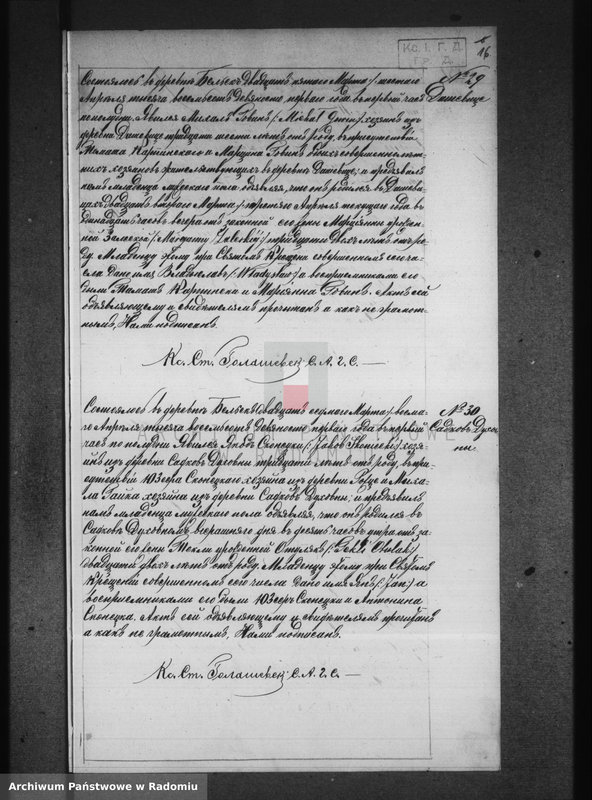 Кс. І. Г. Д.
Гр. Д.
16
Состоялось въ деревнѣ Бельскъ двадцать пятаго Марта / шестаго
№ 29
Апрѣля тысяча восемьсотъ девяносто перваго года въ первый часъ
пополудни. Явился Михалъ Говинъ /: Michał хозяинъ изъ
деревни тридцати шести лѣтъ отъ роду, въ присутствіи
Томаша Карпинскаго и Марцина Говинъ обоихъ совершеннолѣт-
нихъ хозяевъ жительствующихъ въ деревнѣ и предъявилъ
намъ младенца мужескаго пола объявляя, что онъ родился въ
двадцать втораго Марта / третяго Апрѣля текущаго года въ
одинадцать часъ вечера отъ законной его жены Маріанны урожден-
ной Залеской /: Maryanny Zaleskiéj :/ тридцати двухъ лѣтъ отъ ро-
ду. Младенцу этому при Святомъ Крещеніи совершенномъ сего чи-
сла дано имя Владиславъ /: Władysław :/ а воспріемниками его
были Томашъ Карпински и Маріанна Говинъ. Актъ сей
объявляющему и свидѣтелямъ прочитанъ а какъ не грамот-
нымъ, Нами подписанъ.
Кс. Ст. С. А. Г. С.
Состоялось въ деревнѣ Бельскъ двадцать седьмаго Марта / восьма-
№ 30
го Апрѣля тысяча восемьсотъ девяносто перваго года въ первый
Садковъ Духов-
часъ по полудни. Явился Янъ Скопецки /: Skopiecki :/ хозя-
ни
инъ изъ деревни Садковъ Духовны тридцати лѣтъ отъ роду, въ при-
сутствіи Юзефа Скопецкаго хозяина изъ деревни и Миха-
ла Гайка хозяина изъ деревни Садковъ Духовны; и предъявилъ
намъ младенца мужескаго пола объявляя, что онъ родился въ
Садковѣ Духовномъ вчерашняго дня въ десять часовъ утра отъ за-
конной его жены Текли урожденной
двадцати двухъ лѣтъ отъ роду. Младенцу этому при Святомъ
Крещеніи совершенномъ сего числа дано имя Янъ /: Jan :/ а
воспріемниками его были Юзефъ Скопецки и Антонина
Скопецка. Актъ сей объявляющему и свидѣтелямъ прочитанъ
а какъ не грамотнымъ, Нами подписанъ.
Кс. Ст. С. А. Г. С.
Archiwum Państwowe w Radomiu